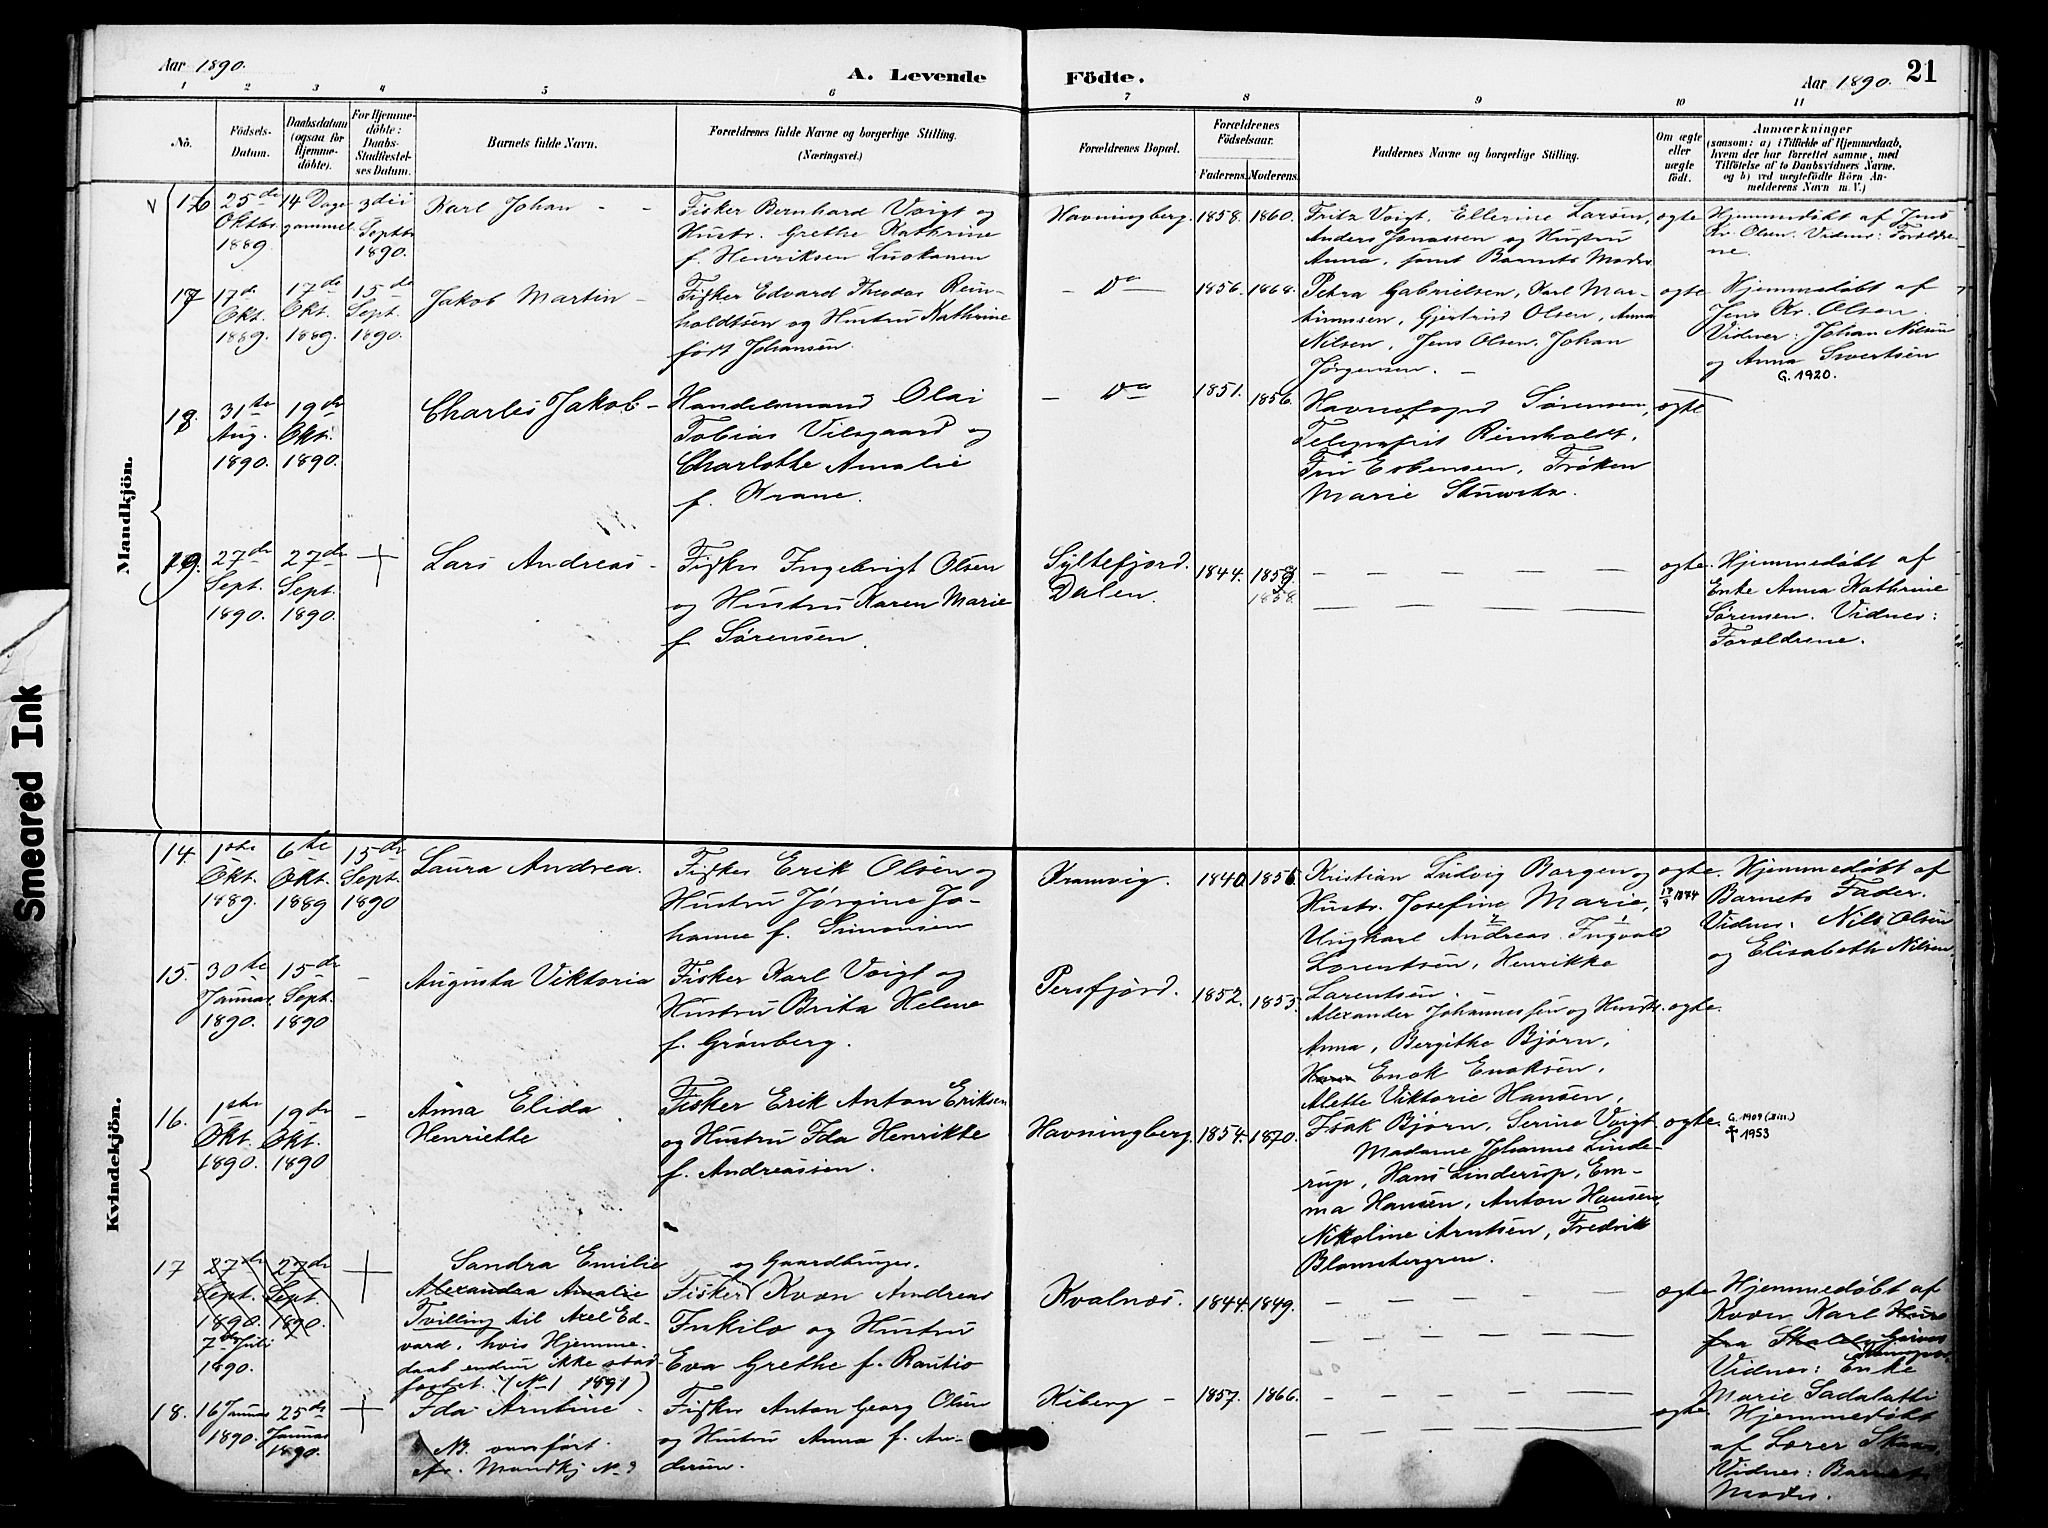 Aar 1890.
A. Levende Födte.
Aar 1890.
21
1 2 3 4 5 6 7 8 9 10 11
No.
Födsels-
Datum.
Daabsdatum
(ogsaa for
Hjemme-
döbte).
For Hjemme-
döbte:
Daabs-
Stadfæstel-
ses Datum.
Barnets fulde Navn.
Forældrenes fulde Navne og borgerlige Stilling.
(Næringsvei.)
Forældrenes Bopæl.
Forældrenes
Födselsaar.
Faderens.
Moderens.
Faddernes Navne og borgerlige Stilling.
Om ægte
eller
uægte
födt.
Anmærkninger
(saasom: a) i Tilfælde af Hjemmedaab,
hvem der har forrettet samme, med
Tilföielse af to Daabsvidners Navne,
og b) ved uægtefödte Börn An-
melderens Navn m. V.)
Mandkjön.
16
25de
Oktbr
1889.
14 Dage
gammel
3die
Septbr
1890.
Karl Johan - -
Fisker Bernhard Voigt og
Hustr. Grethe Kathrine
f. Henriksen Luokanen
Havningberg.
1858.
1860.
Fritz Voigt, Ellerine Larsen,
Anders Jonassen og Hustru
Anna, samt Barnets Moder
ægte
Hjemmedøbt af Jens
Kr. Olsen. Vidner: Forældre-
ne.
17
17de
Okt.
1889.
17de
Okt.
1889.
15de
Sept.
1890.
Jakob Martin -
Fisker Edvard Theodor Rein-
holdtsen og Hustru Kathrine
født Johansen.
- Do -
1856.
1868.
Petra Gabrielsen, Karl Mar-
tinussen, Gjertrud Olsen, Anna
Nilsen, Jens Olsen, Johan
Jørgensen. -
ægte
Hjemmedøbt af
Jens Kr. Olsen.
Vidner: Johan Nilsen
og Anna Sivertsen
G. 1920.
18.
31te
Aug.
1890.
19de
Okt.
1890.
Charles Jakob -
Handelsmand Olai
Tobias Vilsgaard og
Charlotte Amalie
f. Krane.
- Do -
1851.
1856.
Havnefoged Sørensen,
Telegrafist Reinholdt,
Fru Esbensen, Frøken
Marie Stuwitz.
ægte
19.
27de
Sept.
1890.
27de
Sept.
1890.
+
Lars Andreas -
Fisker Ingebrigt Olsen
og Hustru Karen Marie
f. Sørensen.
Syltefjord.
Dalen.
1844.
1859.
1858.
ægte.
Hjemmedøbt af
Enke Anna Kathrine
Sørensen. Vidner:
Forældrene.
Kvindekjön.
14.
1ste
Okt.
1889.
6te
Okt.
1889
15de
Sept.
1890
Laura Andrea.
Fisker Erik Olsen og
Hustru Jørgine Jo-
hanne f. Simonsen
Kramvig.
1840.
1856.
Kristian Ludvig Borgen og
Hustr. Josefine Marie,
Ungkarl Andreas Ingvald
Lorentsen, Henrikke
Larentsen. -
ægte.
Hjemmedøbt af
Barnets Fader.
Vidner: Nils Olsen
og Elisabeth Nilsen.
15.
30te
Januar
1890.
15de
Sept.
1890
-
Augusta Viktoria
Fisker Karl Voigt og
Hustru Brita Helene
f. Grønberg.
Persfjord.
1852.
1853.
Alexander Johannessen og Hustr.
Anna, Bergithe Bjørn,
Enok Enoksen,
Alette Viktorie Hansen,
ægte.
16.
1ste
Okt.
1890.
19de
Okt.
1890
-
Anna Elida
Henriette
Fisker Erik Anton Eriksen
og Hustru Ida Henrikke
f. Andreassen.
Havningberg.
1854.
1870.
Isak Bjørn, Serine Voigt
Madame Johanne Linde-
rup, Hans Linderup, Em-
ma Hansen, Anton Hansen,
Nikoline Arntsen, Fredrik
Blomstergren.
ægte.
G. 1909
† 1953
17
27de
Sept.
1890
7de Juli
1890.
27de
Sept.
1890.
+
Sandra Emilie
Alexandra Amalie
Tvilling til Axel Ed-
vard, hvis Hjemme-
daab endnu ikke stad-
fæstet. (No 1 1891)
og Gaardbruger.
Fisker Kvæn Andreas
Inkilo og Hustru
Eva Grethe f. Rautio
Kvalnæs.
1844.
1849.
ægte
Hjemmedøbt af
Kvæn Karl
fra
Vidner: Enke
Marie Sadalatti
18.
16 Januar
1890.
25de
Januar
1890.
+
Ida Arntine -
NB. overført
Mandkj No 9
Fisker Anton Georg Olsen
og Hustru Anna f. An-
dersen.
Kiberg -
1857.
1866.
ægte
Hjemmedøbt
af Lærer
Vidner: Barnets
Moder.
Smeared Ink